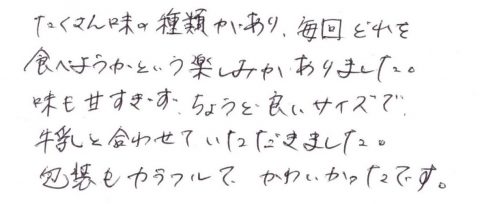 たくさん味の種類があり、毎回どれを
食べようかという楽しみがありました。
味も甘すぎず、ちょうど良いサイズで、
牛乳と合わせていただきました。
包装もカラフルで、かわいかったです。